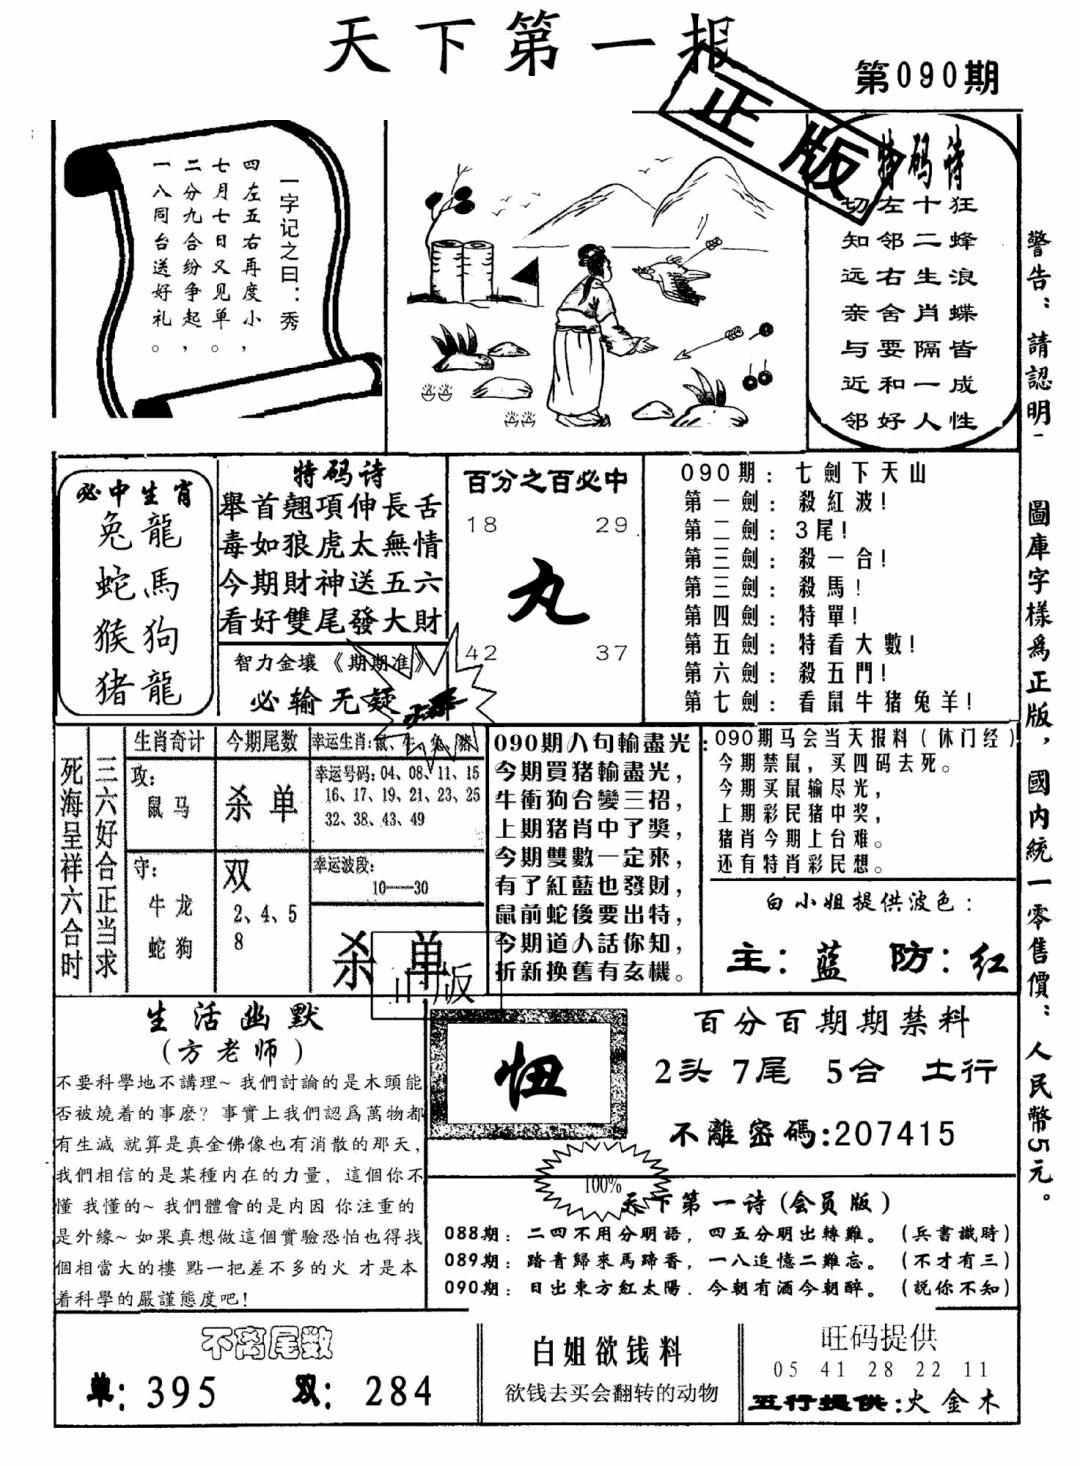 天下第一报
第090期
正版
一字记之曰：秀
四左五右再度小，
七月七日又见单。
二分九合纷争起，
一八同台送好礼。
特码诗
狂蜂浪蝶皆成性
十二生肖隔一人
左邻右舍要和好
切知远亲与近邻
警告：請認明
圖庫字樣爲正版，國内統一零售價：人民幣5元。
必中生肖
兔龍
蛇馬
猴狗
猪龍
特码诗
舉首翹項伸長舌
毒如狼虎太無情
今期財神送五六
看好雙尾發大財
智力金壤《期期准》
必输无疑
百分之百必中
18 29
丸
42 37
090期：七劍下天山
第一劍：殺紅波!
第二劍：3尾!
第三劍：殺一合!
第三劍：殺馬!
第四劍：特單!
第五劍：特看大數!
第六劍：殺五門!
第七劍：看鼠牛猪兔羊!
死海呈祥六合时
三六好合正当求
生肖奇计
攻：
鼠马
守：
牛龙
蛇狗
今期尾数
杀单
双
2、4、5
8
幸运生肖：鼠、牛、兔、猪
幸运号码：04、08、11、15
16、17、19、21、23、25
32、38、43、49
幸运波段：
10——30
杀单
正版
090期八句輸盡光：
今期買猪輸盡光，
牛衝狗合變三招，
上期猪肖中了獎，
今期雙數一定來，
有了紅藍也發財，
鼠前蛇後要出特，
今期道人話你知，
折新换舊有玄機。
090期马会当天报料（休门经）
今期禁鼠，买四码去死。
今期买鼠输尽光，
上期彩民猪中奖，
猪肖今期上台难。
还有特肖彩民想。
白小姐提供波色：
主：蓝 防：红
生活幽默
（方老师）
不要科學地不講理~ 我們討論的是木頭能
否被燒着的事麽？事實上我們認爲萬物都
有生滅 就算是真金佛像也有消散的那天，
我們相信的是某種内在的力量，這個你不
懂 我懂的~ 我們體會的是内因 你注重的
是外緣~ 如果真想做這個實驗恐怕也得找
個相當大的樓 點一把差不多的火 才是本
着科學的嚴謹態度吧！
忸
百分百期期禁料
2头 7尾 5合 土行
不離密碼:207415
100%
天下第一诗(会员版)
088期：二四不用分明語，四五分明出轉難。（兵書識時）
089期：踏青歸來馬蹄香，一八追憶二難忘。（不才有三）
090期：日出東方紅太陽．今朝有酒今朝醉。（説你不知）
不离尾数
单：395 双：284
白姐欲钱料
欲钱去买会翻转的动物
旺码提供
05 41 28 22 11
五行提供：火金木